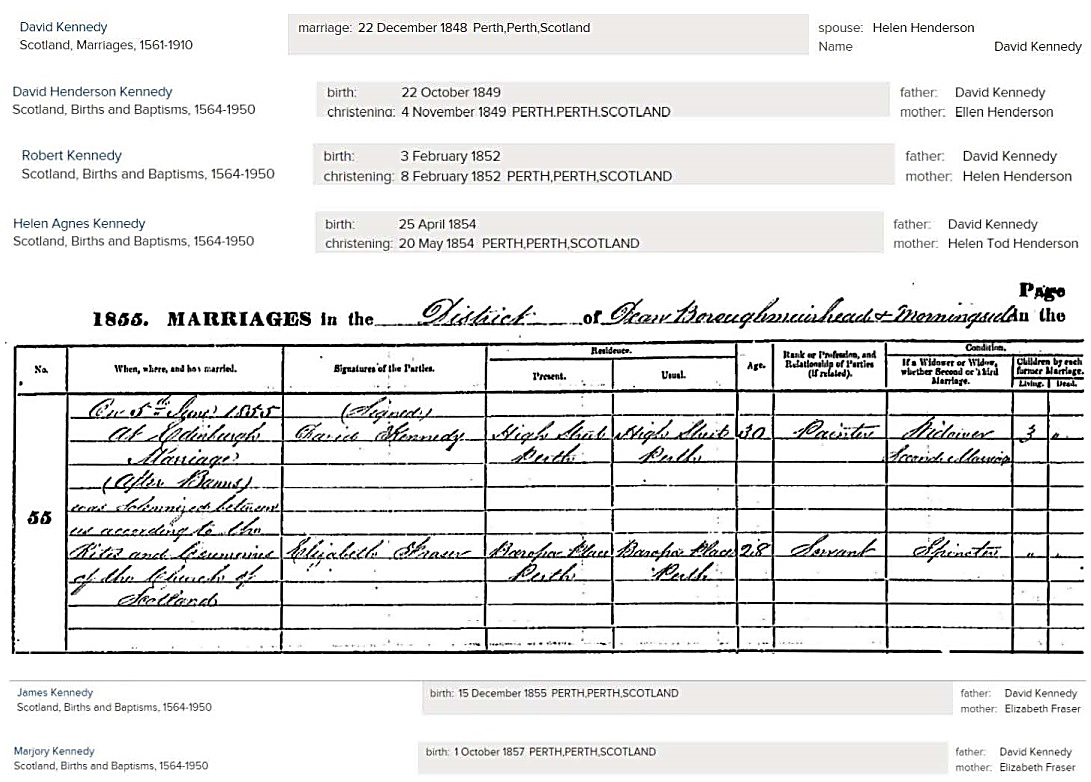 David Kennedy
Scotland, Marriages, 1561-1910
marriage: 22 December 1848 Perth,Perth,Scotland
spouse: Helen Henderson
Name David Kennedy
David Henderson Kennedy
Scotland, Births and Baptisms, 1564-1950
birth: 22 October 1849
christening: 4 November 1849 PERTH.PERTH.SCOTLAND
father: David Kennedy
mother: Ellen Henderson
Robert Kennedy
Scotland, Births and Baptisms, 1564-1950
birth: 3 February 1852
christening: 8 February 1852 PERTH,PERTH,SCOTLAND
father: David Kennedy
mother: Helen Henderson
Helen Agnes Kennedy
Scotland, Births and Baptisms, 1564-1950
birth: 25 April 1854
christening: 20 May 1854 PERTH,PERTH,SCOTLAND
father: David Kennedy
mother: Helen Tod Henderson
Page
1855. MARRIAGES in the District of Dean Boroughmuirhead & Morningside in the
No.
When, where, and how married.
Signatures of the Parties.
Residence.
Present.
Usual.
Age.
Rank or Profession, and
Relationship of Parties
(if related).
Condition.
If a Widower or Widow,
whether Second or Third
Marriage.
Children by each
former Marriage.
Living.
Dead.
55
On 5th June 1855
At Edinburgh
Marriage
(After Banns)
was solemnized between
us according to the
Rites and Ceremonies
of the Church of
Scotland
(Signed)
David Kennedy
High Street
Perth
High Street
Perth
30
Painter
Widower
Second Marriage
3
"
Elizabeth Fraser
Barossa Place
Perth
Barossa Place
Perth
28
Servant
Spinster
"
"
James Kennedy
Scotland, Births and Baptisms, 1564-1950
birth: 15 December 1855 PERTH,PERTH,SCOTLAND
father: David Kennedy
mother: Elizabeth Fraser
Marjory Kennedy
Scotland, Births and Baptisms, 1564-1950
birth: 1 October 1857 PERTH,PERTH,SCOTLAND
father: David Kennedy
mother: Elizabeth Fraser